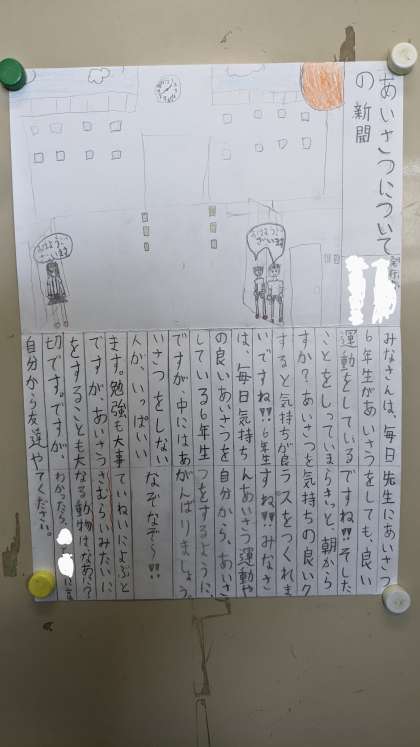 あいさつについて
の新聞
おはようございます
おはようございます
みなさんは、毎日
６年生があいさつ
運動をしている
ことをしっていま
すか？あいさつを
すると気持ちが良
いですね!!６年生
は、毎日気持ち
の良いあいさつを
している６年生
ですが、中にはあ
いさつをしない
人が、いっぱいい
ます。勉強も大事
ですが、あいさつ
をすることも大
切です。ですが、
自分から友達や
先生にあいさつ
をしても、良い
ですね!!そした
らきっと、朝から
気持ちの良いク
ラスをつくれま
すね!!みなさ
んあいさつ運動や
自分から、あいさ
つをするように、
がんばりましょう
なぞなぞ～!!
ていねいによぶと
さむらいみたいに
なる動物はなあに？
わかったら、
てください。